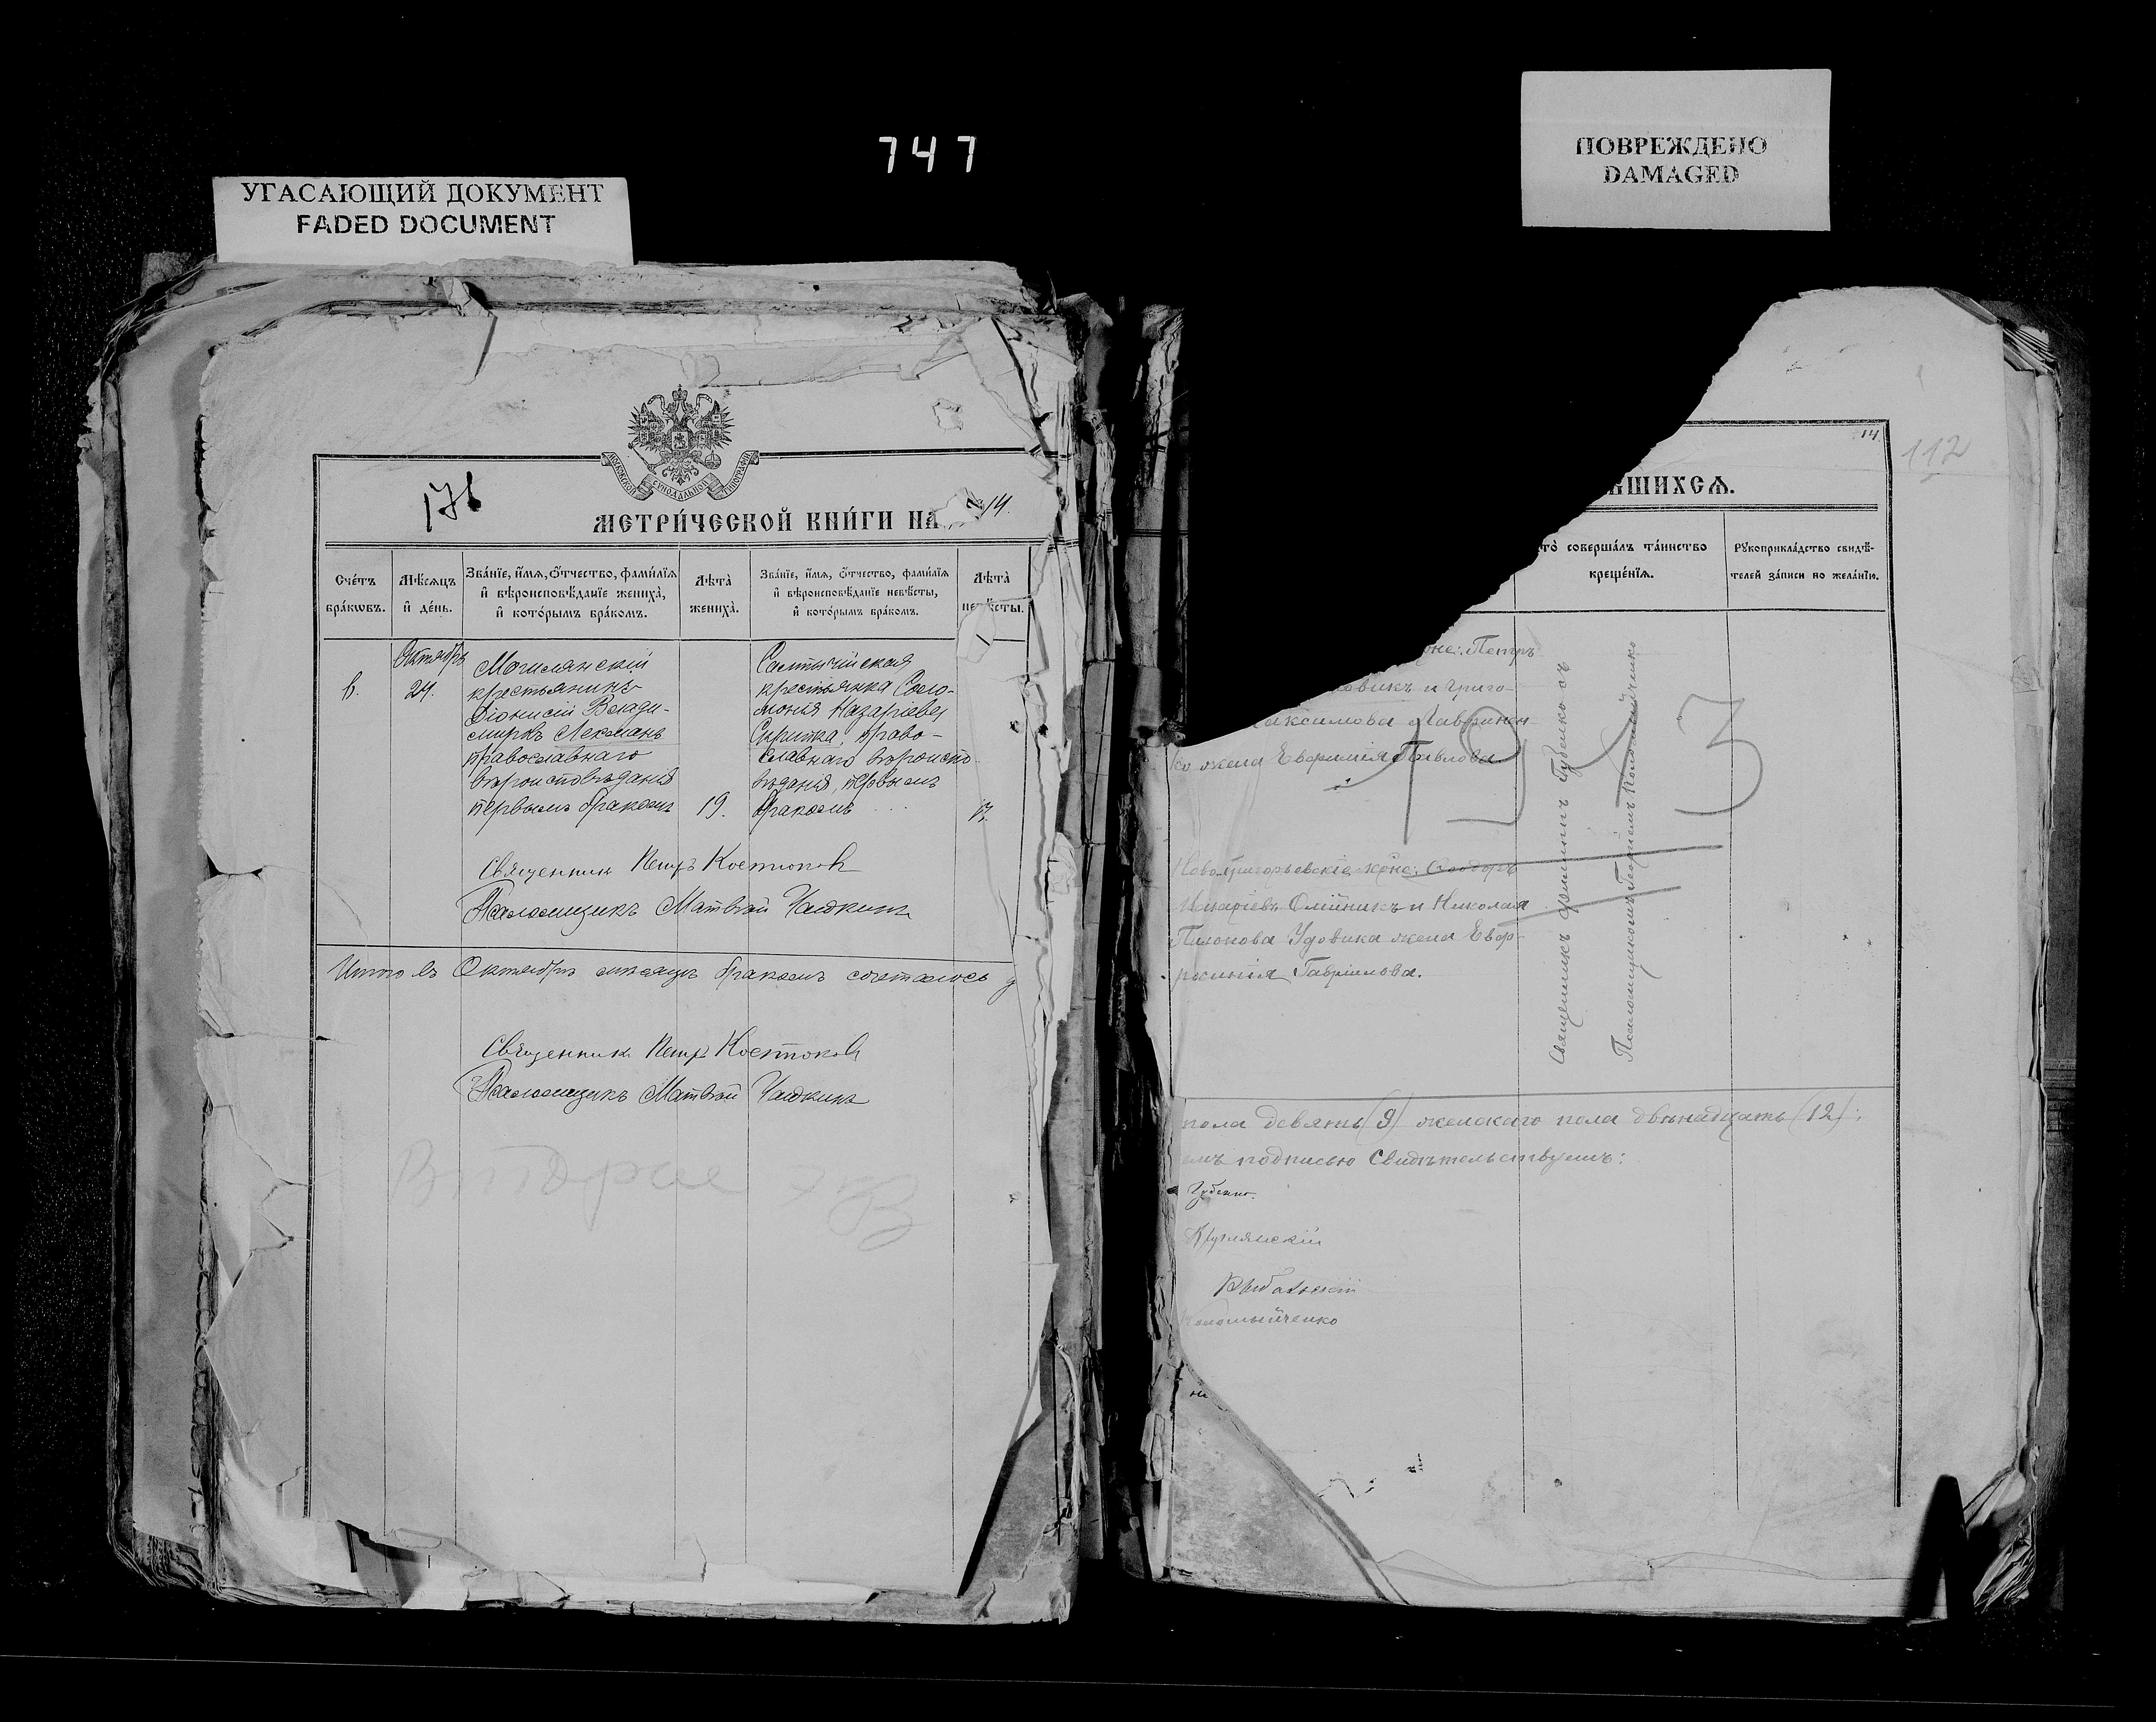 747
УГАСАЮЩИЙ ДОКУМЕНТ
FADED DOCUMENT
ПОВРЕЖДЕНО
DAMAGED
МОСКОВСКОЙ СѴНОДАЛЬНОЙ ТИПОГРАФІИ
176
14.
МЕТРИ́ЧЕСКОЙ КНИ́ГИ НА
Сче́тъ бра́кωвъ.
Мѣ́сяцъ и҆ де́нь.
Зва́нїе, и҆́мѧ, ѻ҆́тчество, фами́лїѧ и҆ вѣроисповѣ́данїе жениха̀, и҆ кото́рымъ бра́комъ.
Лѣта̀ жениха̀.
Зва́нїе, и҆́мѧ, ѻ҆́тчество, фами́лїѧ и҆ вѣроисповѣ́данїе невѣ́сты, и҆ кото́рымъ бра́комъ.
Лѣта̀ невѣ́сты.
Октябрь
6.
24.
Могилянскій
крестьянинъ
Діонисій Влади-
миръ Лекманъ
православнаго
вѣроисповѣданія
первымъ бракомъ
19.
Салтычійская
крестьянка Соло-
монія Назаріева
Скрипка, право-
славнаго вѣроиспо-
вѣданія, первымъ
бракомъ
17.
Священникъ Петръ Костюковъ
Псаломщикъ Матвѣй Чайкинъ
Итого въ Октябрѣ мѣсяцѣ бракомъ сочеталось
Священникъ Петръ Костюковъ
Псаломщикъ Матвѣй Чайкинъ
14
112
ВШИХСѦ.
то̀ соверша́лъ та́инство креще́нїѧ.
Рꙋкоприкла́дство свидѣ́телей за́писи по жела́нїю.
Петръ
овикъ и Григо-
аксимова Лавринен-
ко жена Евфимія Павлова.
Новогригорьевскіе крне: Ѳеодоръ
Олійникъ и Николая
Удовика жена Евф-
росинія Гавріилова.
Священникъ Губенко съ
Псаломщикомъ Коломыйченко
13
пола девять (9) женскаго пола двѣнадцать (12);
емъ подписью Свидѣтельствуемъ:
Губенко.
Круглянскій
Рыбальскій
Коломыйченко